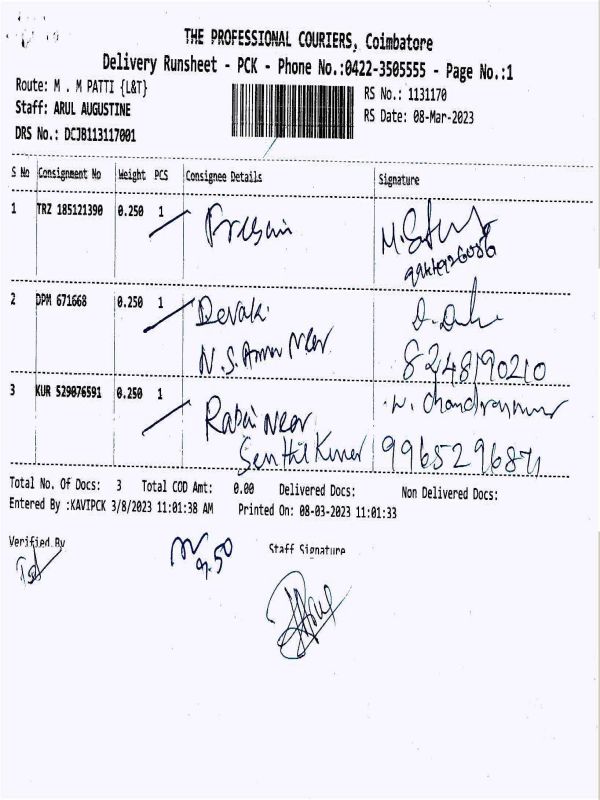 THE PROFESSIONAL COURIERS, Coimbatore
Delivery Runsheet - PCK - Phone No.:0422-3505555 - Page No.:1
Route: M . M PATTI {L&T}
RS No.: 1131170
Staff: ARUL AUGUSTINE
RS Date: 08-Mar-2023
DRS No.: DCJB113117001
S No Consignment No Weight PCS Consignee Details Signature
1 TRZ 185121390 0.250 1
2 DPM 671668 0.250 1 Devaki
N.S.
8248190210
3 KUR 529076591 0.250 1
Senthil Kumar 9965296871
Total No. Of Docs: 3 Total COD Amt: 0.00 Delivered Docs: Non Delivered Docs:
Entered By :KAVIPCK 3/8/2023 11:01:38 AM Printed On: 08-03-2023 11:01:33
Verified By
Staff Signature